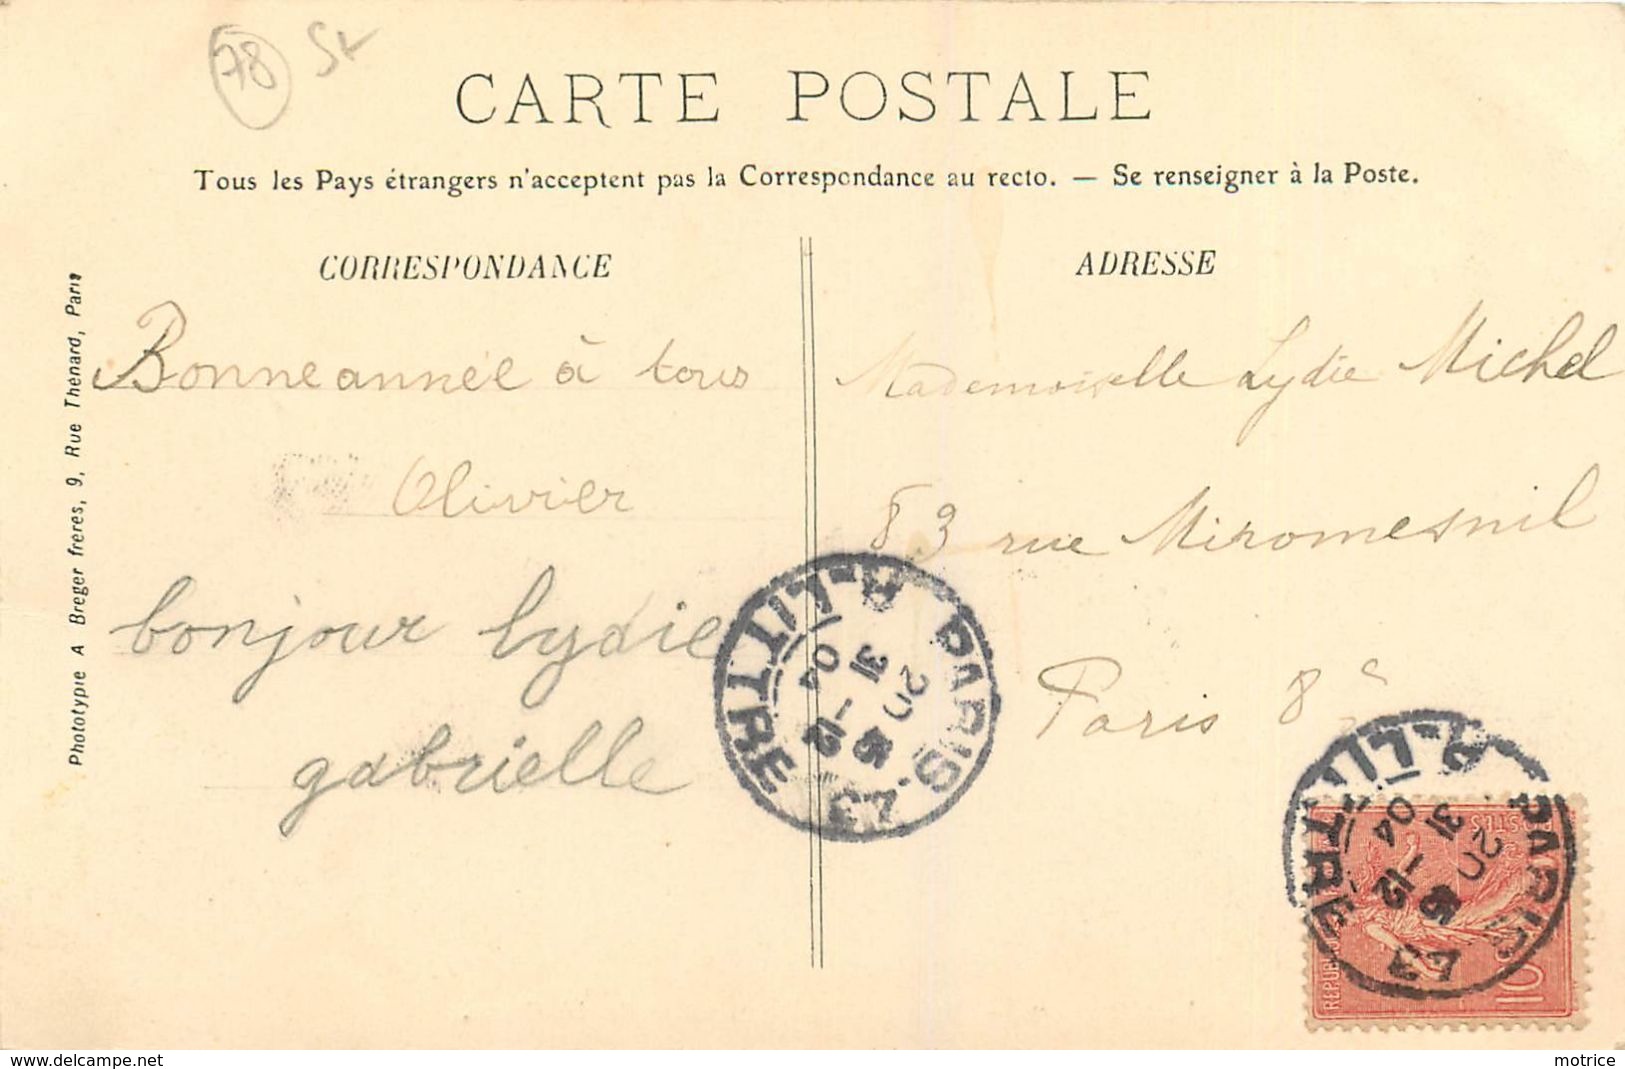 78 St
CARTE POSTALE
Tous les Pays étrangers n'acceptent pas la Correspondance au recto. — Se renseigner à la Poste.
CORRESPONDANCE
Bonne année à tous
Olivier
bonjour lydie
gabrielle
ADRESSE
Mademoiselle Lydie Michel
83 rue Miromesnil
Paris 8e
Phototypie A Breger freres, 9, Rue Thénard, Paris
PARIS-43 R-LITTRE
20 45
31 -12
04
PARIS 43 R-LITTRE
20 45
31 -12
04
POSTES
10
www.delcampe.net
motrice